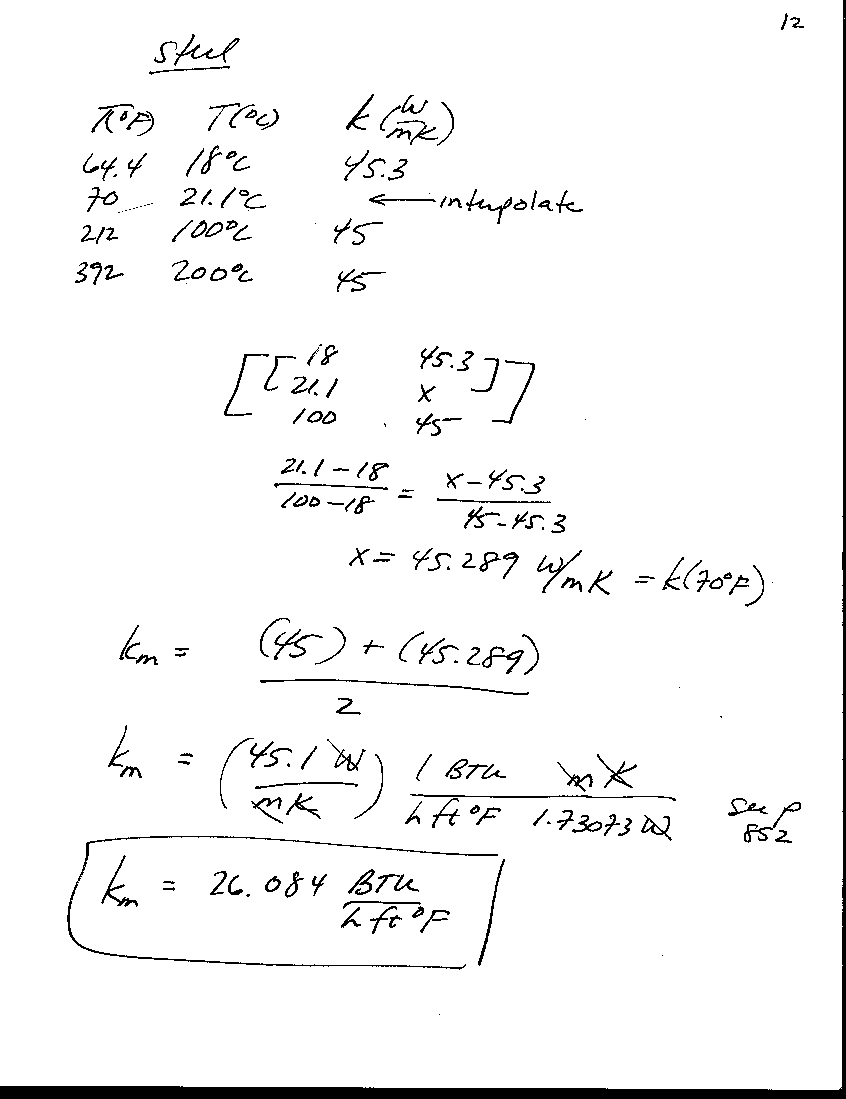 12
steel
T(°F) T(°C) k (W/mK)
64.4 18°C 45.3
70 21.1°C ← interpolate
212 100°C 45
392 200°C 45
[[ 18 45.3 ]
21.1 x
100 45 ]
(21.1 - 18)/(100 - 18) = (x - 45.3)/(45 - 45.3)
x = 45.289 W/mK = k(70°F)
km = ((45) + (45.289))/2
km = (45.1 W/mK) 1 BTU/h ft °F mK/1.73073 W see p 852
km = 26.084 BTU/h ft °F